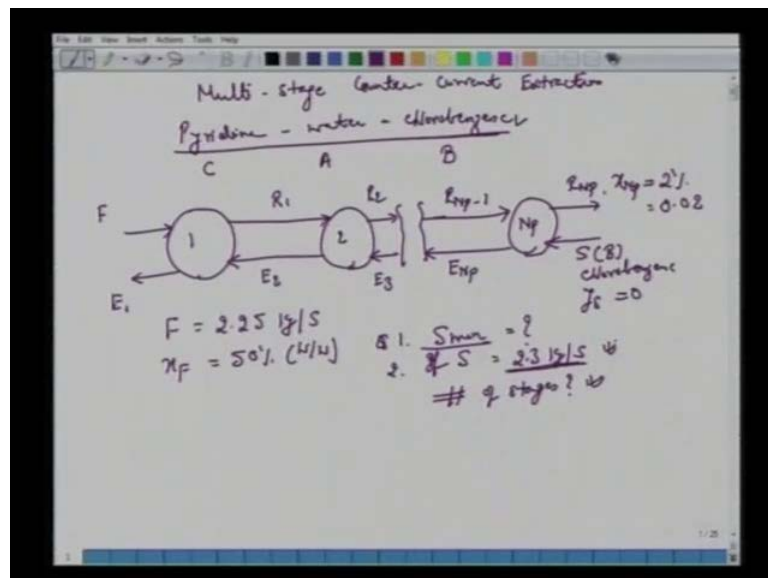 File Edit View Insert Actions Tools Help
Multi - stage Counter-Current Extraction
Pyridine - water - chlorobenzene
C A B
F R1 R2 RNp-1 RNp, xNp = 2%
= 0.02
1 2 Np
E1 E2 E3 ENp S(B)
chlorobenzene
ys = 0
F = 2.25 kg/s
xF = 50% (w/w)
1. Smin = ?
2. If S = 2.3 kg/s
# of stages?
1/25